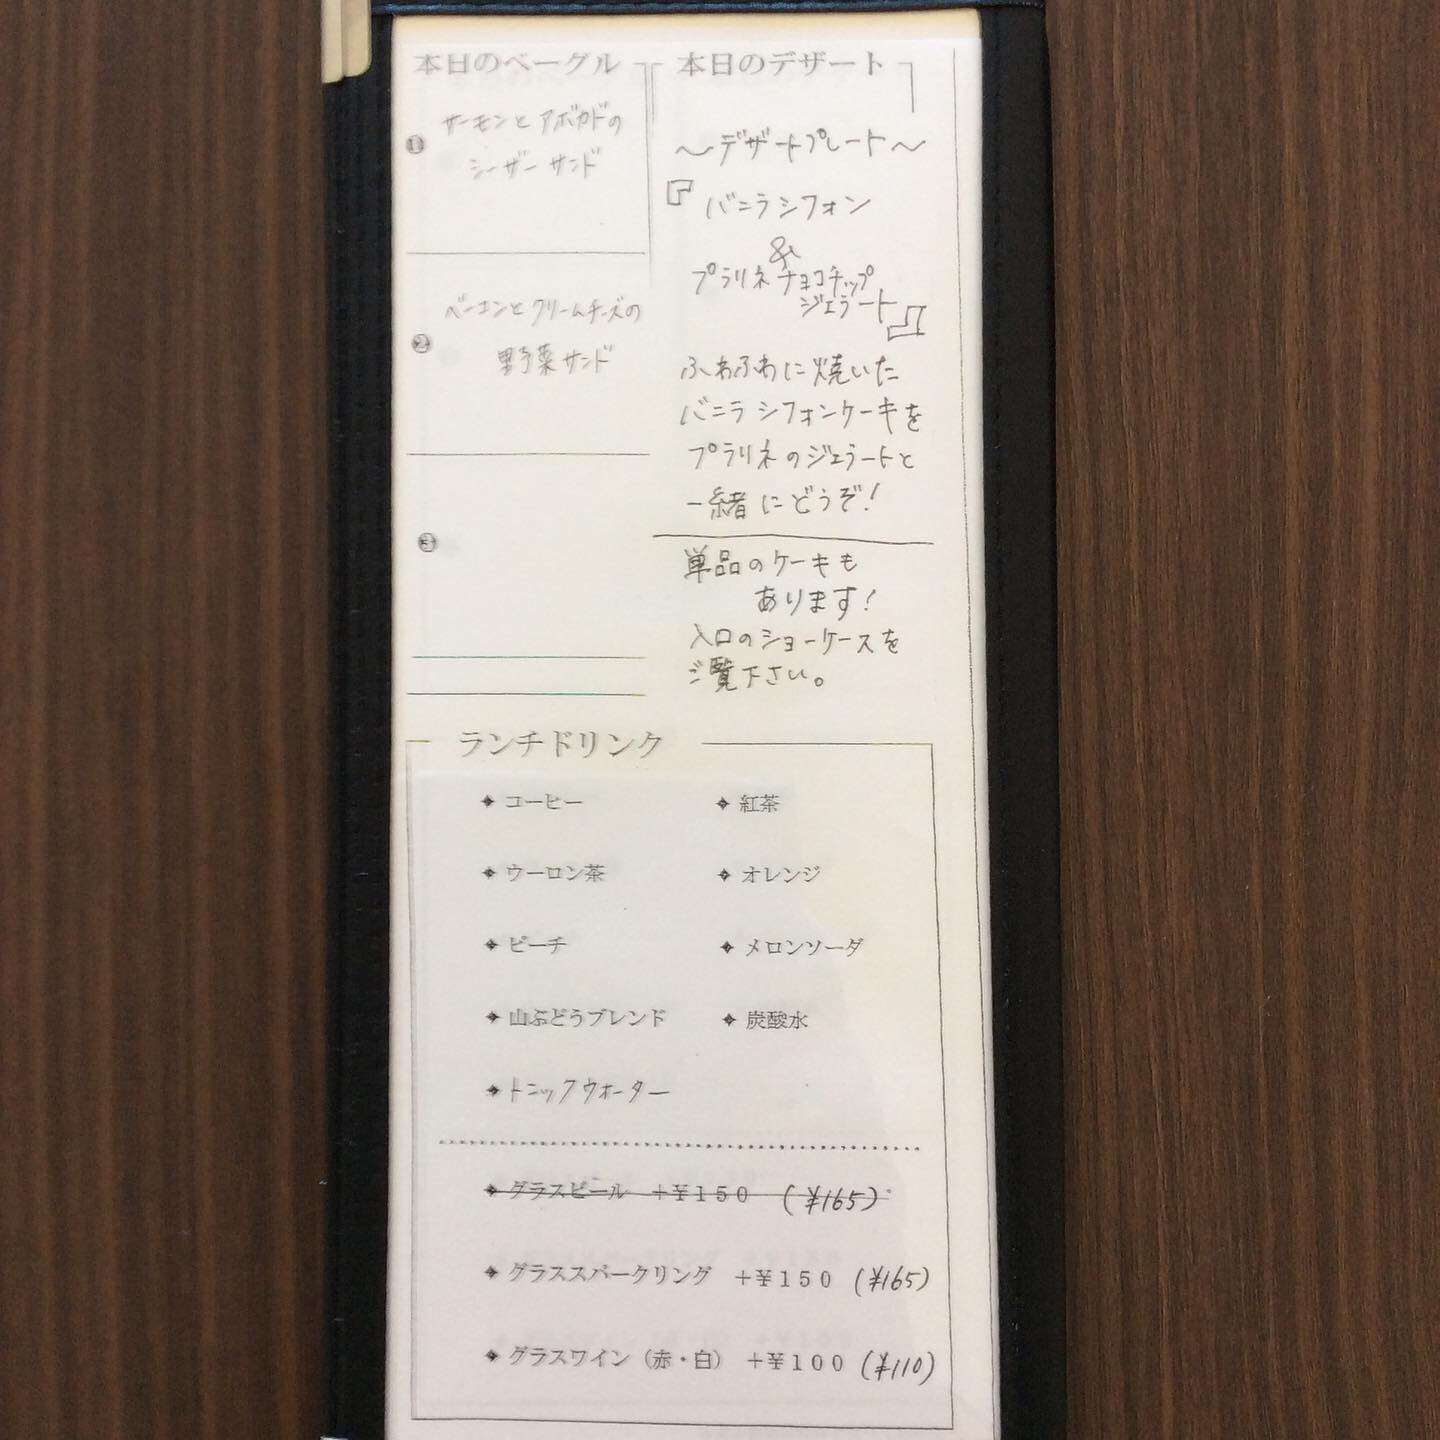 本日のベーグル
① サーモンとアボカドの
シーザーサンド
② ベーコンとクリームチーズの
野菜サンド
③
本日のデザート
〜デザートプレート〜
『バニラシフォン
&
プラリネチョコチップ
ジェラート』
ふわふわに焼いた
バニラシフォンケーキを
プラリネのジェラートと
一緒にどうぞ!
単品のケーキも
あります!
入口のショーケースを
ご覧下さい。
ランチドリンク
◆ コーヒー ◆ 紅茶
◆ ウーロン茶 ◆ オレンジ
◆ ピーチ ◆ メロンソーダ
◆ 山ぶどうブレンド ◆ 炭酸水
◆ トニックウォーター
◆ グラスビール +¥150 (¥165)
◆ グラススパークリング +¥150 (¥165)
◆ グラスワイン（赤・白） +¥100 (¥110)